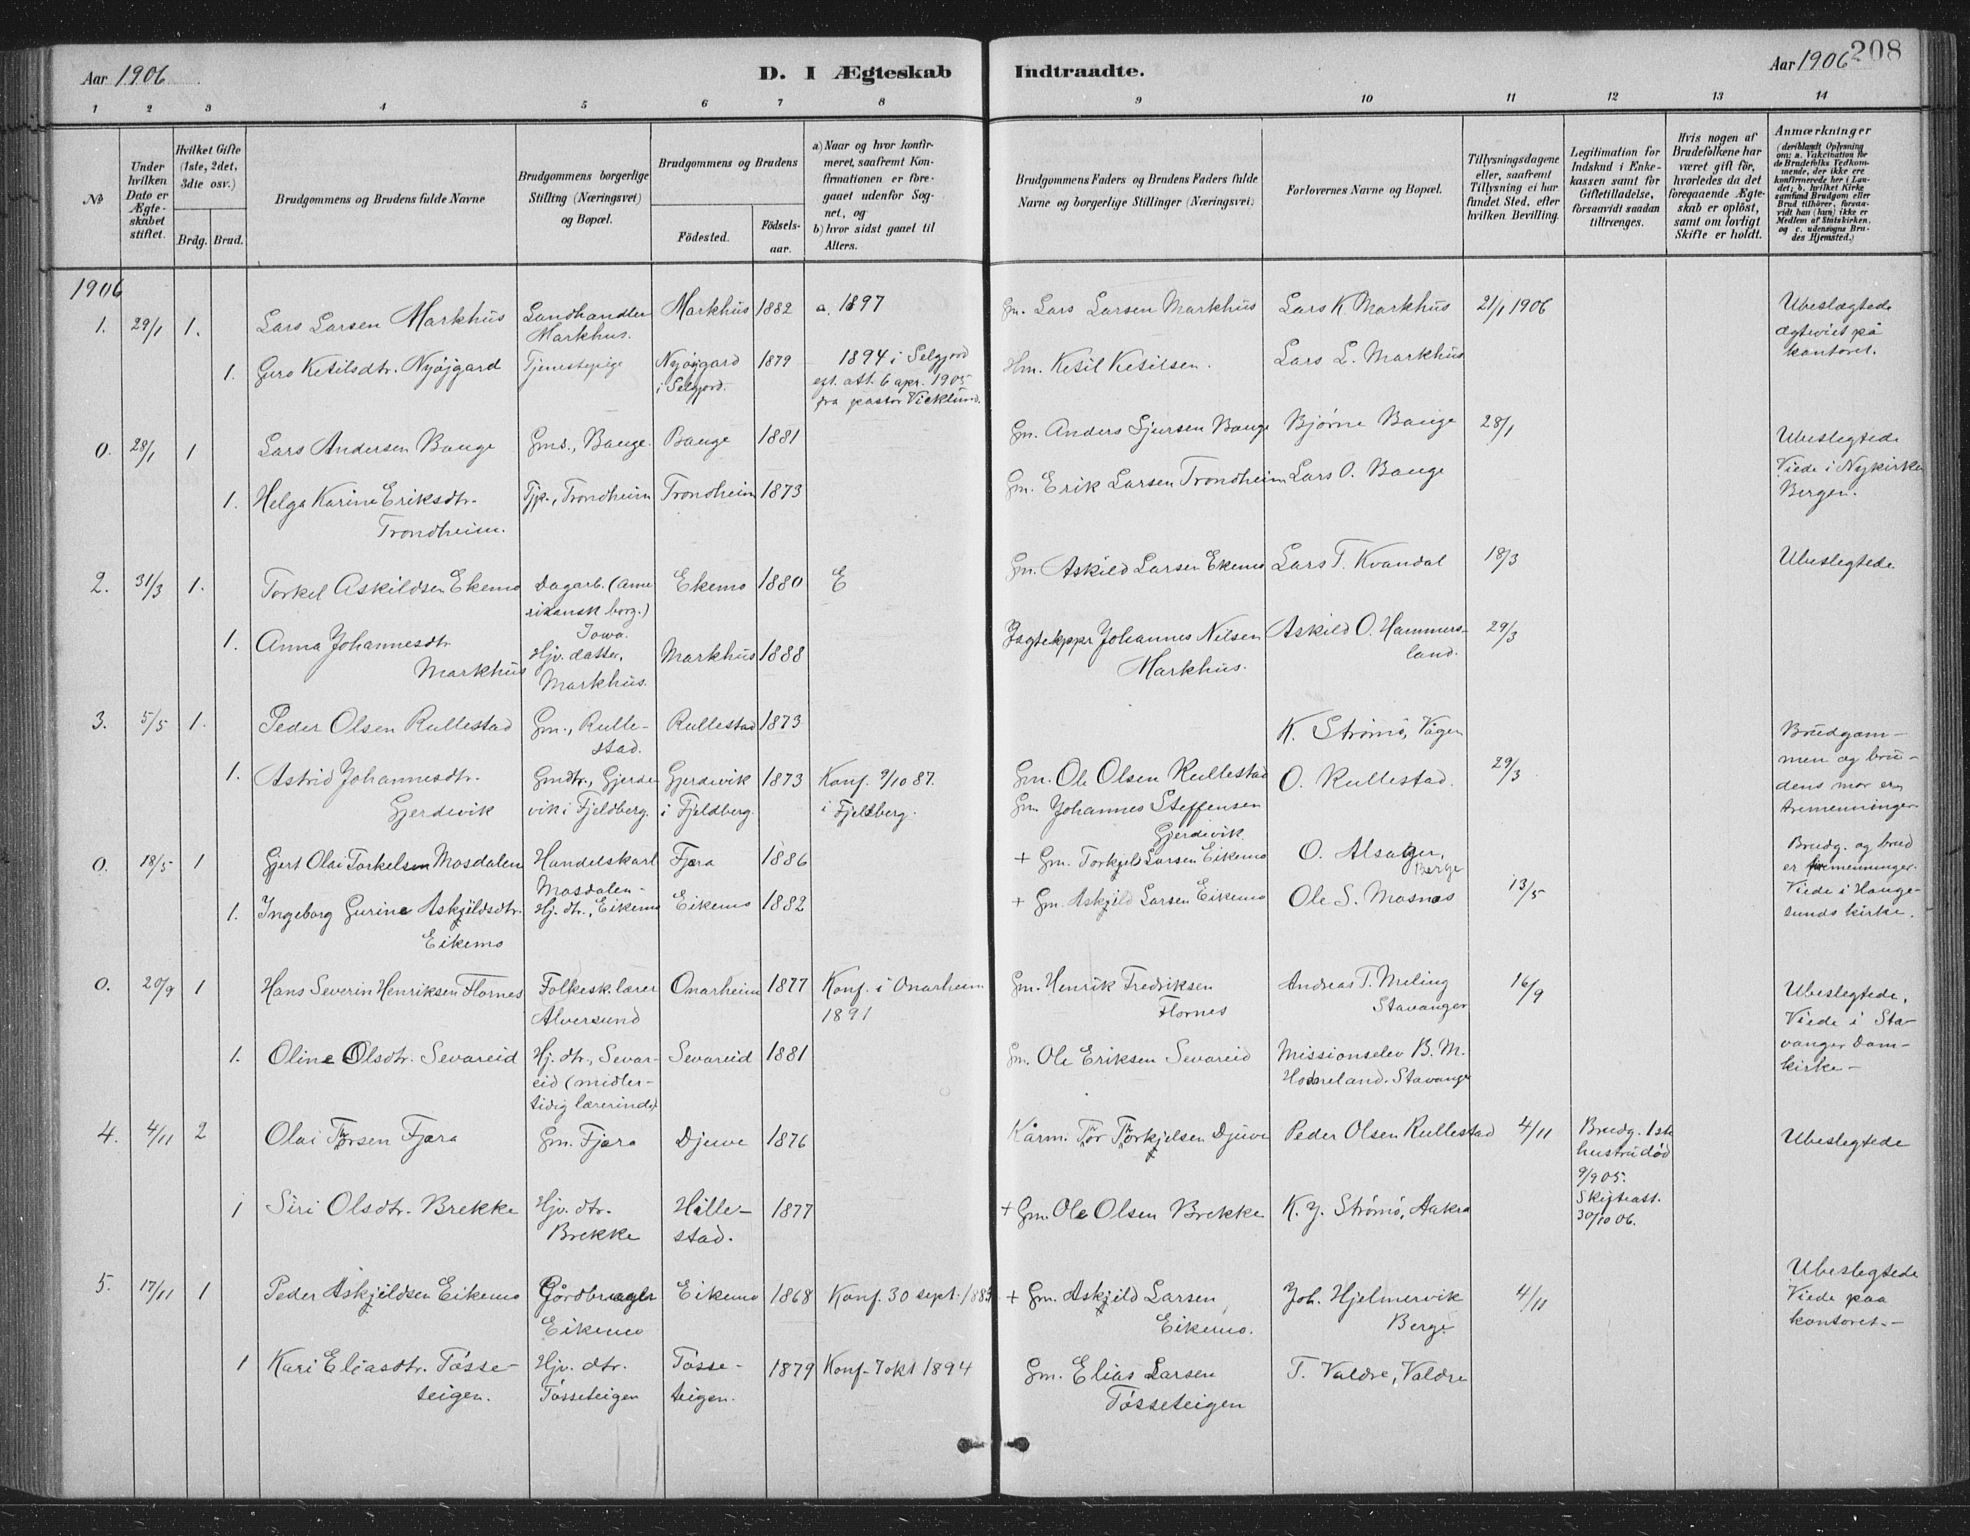 Aar 1906
D. I Ægteskab Indtraadte.
Aar 1906
208
1 2 3 4 5 6 7 8 9 10 11 12 13 14
No
Under hvilken Dato er Ægteskabet stiftet.
Hvilket Gifte (1ste, 2det, 3dte osv.)
Brdg. Brud.
Brudgommens og Brudens fulde Navne
Brudgommens borgerlige Stilling (Næringsvei) og Bopæl.
Brudgommens og Brudens
Fødested. Fødselsaar.
a) Naar og hvor konfirmeret, saafremt Konfirmationen er foregaaet udenfor Sognet, og
b) hvor sidst gaaet til Alters.
Brudgommens Faders og Brudens Faders fulde Navne og borgerlige Stillinger (Næringsvei).
Forlovernes Navne og Bopæl.
Tillysningsdagene eller, saafremt Tillysning ei har fundet Sted, efter hvilken Bevilling.
Legitimation for Indskud i Enkekassen samt for Giftetilladelse, forsaavidt saadan tiltrænges.
Hvis nogen af Brudefolkene har været gift før, hvorledes da det foregaaende Ægteskab er opløst, samt om lovligt Skifte er holdt.
Anmærkninger (deriblandt Oplysning om: a. Vakcination for de Brudefolks Vedkommende, der ikke ere konfirmerede her i Landet; b. hvilket Kirkesamfund Brudgom eller Brud tilhører, forsaavidt han (hun) ikke er Medlem af Statskirken, og c. udensogns Brudes Hjemsted.)
1906
1. 29/1 1. Lars Larsen Markhus Landhandler Markhus. Markhus 1882 a. 1897 Gm. Lars Larsen Markhus Lars K. Markhus 21/1 1906 Ubeslægtede ægteviet på kontoret.
1. Guro Ketilsdtr. Nyøjgard Tjenestepige Nyøygard i Selgjord. 1879 1894 i Selgjord egt. att. 6 apr. 1905 fra pastor Vicklund. Hm. Ketil Ketilsen. Lars L. Markhus
0. 28/1 1 Lars Andersen Bauge Gms., Bauge. Bauge 1881 Gm. Anders Sjursen Bauge Bjørne Bauge 28/1 Ubeslegtede Viede i Nykirken Bergen.
1. Helga Karine Eriksdtr. Trondheim. Tjp., Trondheim Trondheim 1873 Gm. Erik Larsen Trondheim Lars O. Bauge
2. 31/3 1. Torkel Askildsen Ekemo Dagarb. (amerikansk borg.) Iowa. Ekemo 1880 E Gm. Askild Larsen Ekemo Lars T. Kvandal 18/3 Ubeslegtede
1. Anna Johannesdtr. Markhus Hjv. datter, Markhus. Markhus 1888 Jagtekppr Johannes Nilsen Markhus. Askild O. Hammersland. 29/3
3. 5/5 1. Peder Olsen Rullestad Gm., Rullestad. Rullestad 1873 Gm. Ole Olsen Rullestad K. Strømø, Vågen 29/3 Brudgommen og brudens mor er tremenninger
1. Astrid Johannesdtr. Gjerdevik Gmdtr., Gjerdevik i Fjeldberg. Gjerdevik i Fjeldberg. 1873 Konf. 9/10 87. i Fjeldberg. Gm. Johannes Steffensen Gjerdevik. O. Rullestad.
0. 18/5 1 Gjert Olai Torkelsen Mosdalen Handelskarl Mosdalen- Fjæra 1886 + Gm. Torkjel Larsen Eikemo O. Alsaker, Berge 13/5 Brudg. og brud er tremenninger. Viede i Haugesunds kirke.
1. Ingeborg Gurine Askjildsdtr. Eikemo Hj. dtr., Eikemo Eikemo 1882 + Gm. Askjild Larsen Eikemo Ole S. Mosnes
0. 20/9 1 Hans Severin Henriksen Flornes Folkesk.lærer Alversund Onarheim 1877 Konf. i Onarheim 1891 Gm. Henrik Fredriksen Flornes Andreas T. Meling Stavanger 16/9 Ubeslegtede, Viede i Stavanger Domkirke-
1. Oline Olsdtr. Sevareid Hj. dtr., Sevareid (midlertidig lærerinde) Sevareid 1881 Gm. Ole Eriksen Sevareid Missionselev B. M. Stavanger
4. 4/11 2 Olai Thorsen Fjæra Gm. Fjæra Djuve 1876 Kårm. Thor Thorkjelsen Djuve Peder Olsen Rullestad 4/11 Brudg. 1ste hustru død 9/9 05. Skifteatt. 30/10 06. Ubeslegtede
1 Siri Olsdtr. Brekke Hjv. dtr. Brekke Hillestad. 1877 + Gm. Ole Olsen Brekke K. J. Strømø, Aakra
5. 17/11 1 Peder Askjeldsen Eikemo Gårdbruger Eikemo Eikemo 1868 Konf. 30 sept. 1883 + Gm. Askjild Larsen Eikemo. Joh. Hjelmervik Berge 4/11 Ubeslegtede Viede paa kontoret.-
1 Kari Eliasdtr. Tøsseteigen. Hjv. dtr. Tøsseteigen Tøsseteigen. 1879 Konf. 7 okt 1894 Gm. Elias Larsen Tøsseteigen T. Valdre, Valdre